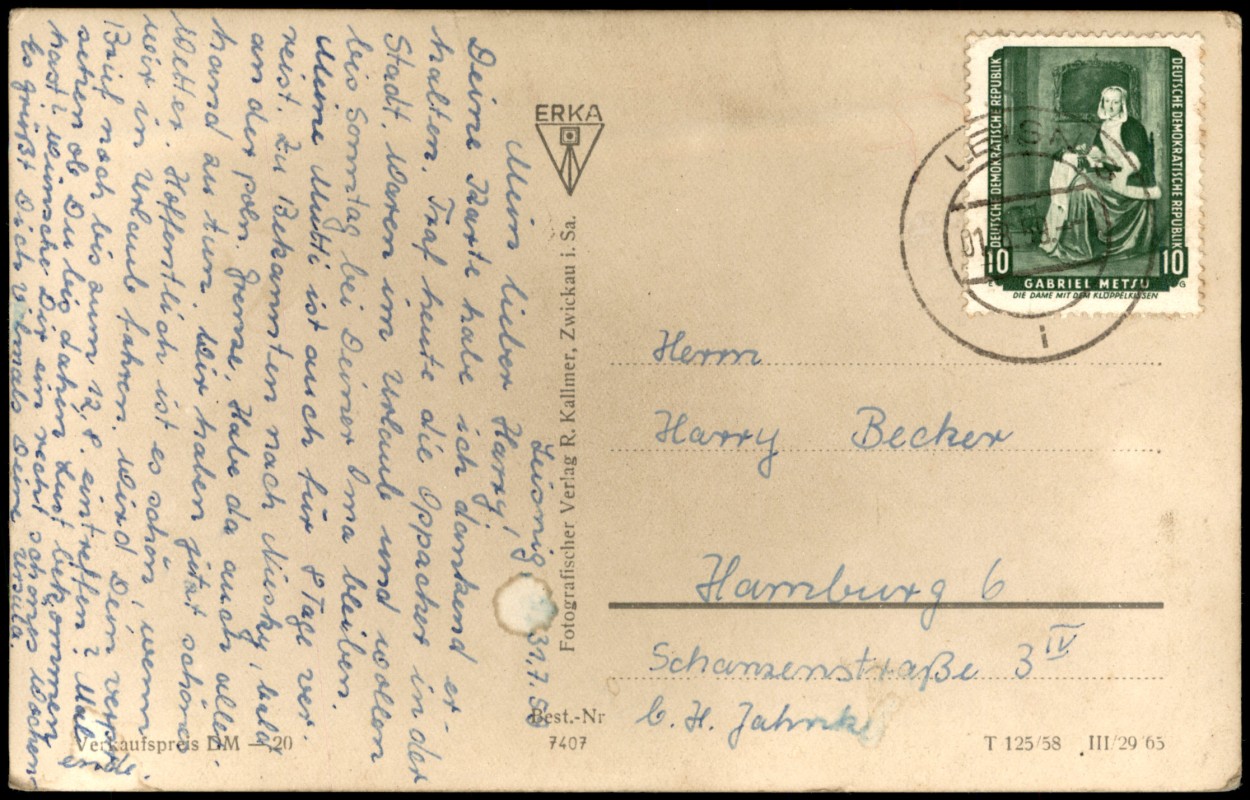 Leisnig 31.7.
Mein lieber Harry!
Deine Karte habe ich dankend er-
halten. Traf heute die Oppacher in der
Stadt, waren im Urlaub und wollen
bis Sonntag bei Deiner Oma bleiben.
Meine Mutti ist auch für 8 Tage ver-
reist. Zu Bekannten nach Niesky, bald
an der poln. Grenze. Habe da auch aller-
hand zu tun. Wir haben jetzt schönes
Wetter. Hoffentlich ist es schön, wenn
wir in Urlaub fahren. Wird Dein
Brief noch bis zum 12.8. eintreffen? Mal
sehen ob Du bis dahin Lust bekommen
hast? Wünsche Dir ein recht schönes Wochen-
ende.
Es grüßt Dich vielmals Deine Ursula.
ERKA
Fotografischer Verlag R. Kallmer, Zwickau i. Sa.
Verkaufspreis DM —,20
Best.-Nr
7407
DEUTSCHE DEMOKRATISCHE REPUBLIK
DEUTSCHE DEMOKRATISCHE REPUBLIK
10
10
GABRIEL METSU
DIE DAME MIT DEM KLÖPPELKISSEN
i
Herrn
Harry Becker
Hamburg 6
Schanzenstraße 3 IV
b. H. Jahnke
T 125/58 III/29 65